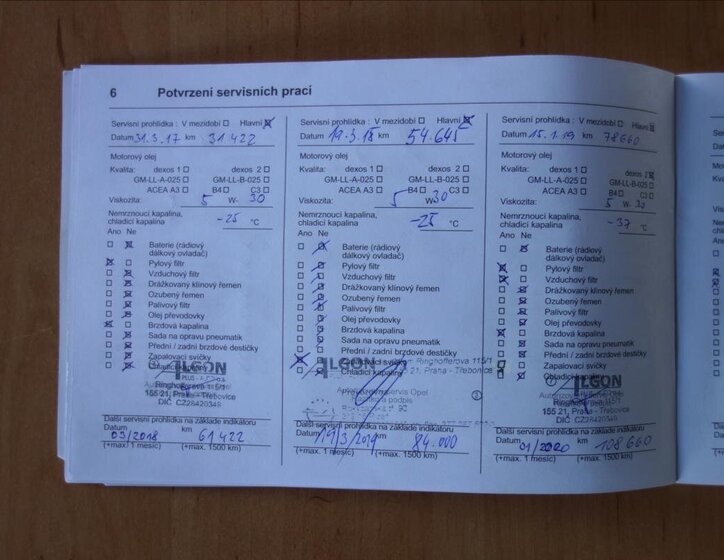 6 Potvrzení servisních prací
Servisní prohlídka : V mezidobí Hlavní
Datum 31.3.17 km 31 422
Motorový olej
Kvalita: dexos 1 dexos 2
GM-LL-A-025 GM-LL-B-025
ACEA A3 B4 C3
Viskozita: 5 W- 30
Nemrznoucí kapalina,
chladicí kapalina -25 °C
Ano Ne
Baterie (rádiový
dálkový ovladač)
Pylový filtr
Vzduchový filtr
Drážkovaný klínový řemen
Ozubený řemen
Palivový filtr
Olej převodovky
Brzdová kapalina
Sada na opravu pneumatik
Přední / zadní brzdové destičky
Zapalovací svíčky
Chladicí kapaliny
ALGON
Ringhofferova 115/1
155 21, Praha - Třebovice
DIČ CZ28420349
Další servisní prohlídka na základě indikátoru
Datum km
03/2018 61 422
(+max. 1 měsíc) (+max. 1500 km)
Servisní prohlídka : V mezidobí Hlavní
Datum 19.3.18 km 54.645
Motorový olej
Kvalita: dexos 1 dexos 2
GM-LL-A-025 GM-LL-B-025
ACEA A3 B4 C3
Viskozita: 5 W 30
Nemrznoucí kapalina,
chladicí kapalina -25 °C
Ano Ne
Baterie (rádiový
dálkový ovladač)
Pylový filtr
Vzduchový filtr
Drážkovaný klínový řemen
Ozubený řemen
Palivový filtr
Olej převodovky
Brzdová kapalina
Sada na opravu pneumatik
Přední / zadní brzdové destičky
svíčky Ringhofferova 115/1
Chladicí 21, Praha - Třebonice
ALGON
servis Opel
a podpis
Další servisní prohlídka na základě indikátoru
Datum km
19/3/2019 84.000
(+max. 1 měsíc) (+max. 1500 km)
Servisní prohlídka : V mezidobí Hlavní
Datum 15.1.19 km 78660
Motorový olej
Kvalita: dexos 1 dexos 2
GM-LL-A-025 GM-LL-B-025
ACEA A3 B4 C3
Viskozita: 5 W 30
Nemrznoucí kapalina,
chladicí kapalina -37 °C
Ano Ne
Baterie (rádiový
dálkový ovladač)
Pylový filtr
Vzduchový filtr
Drážkovaný klínový řemen
Ozubený řemen
Palivový filtr
Olej převodovky
Brzdová kapalina
Sada na opravu pneumatik
Přední / zadní brzdové destičky
Zapalovací svíčky
Chladicí kapaliny
ALGON
155 21, Praha - Třebovice
DIČ CZ28420349
Další servisní prohlídka na základě indikátoru
Datum km
01/2020 108 660
(+max. 1 měsíc) (+max. 1500 km)